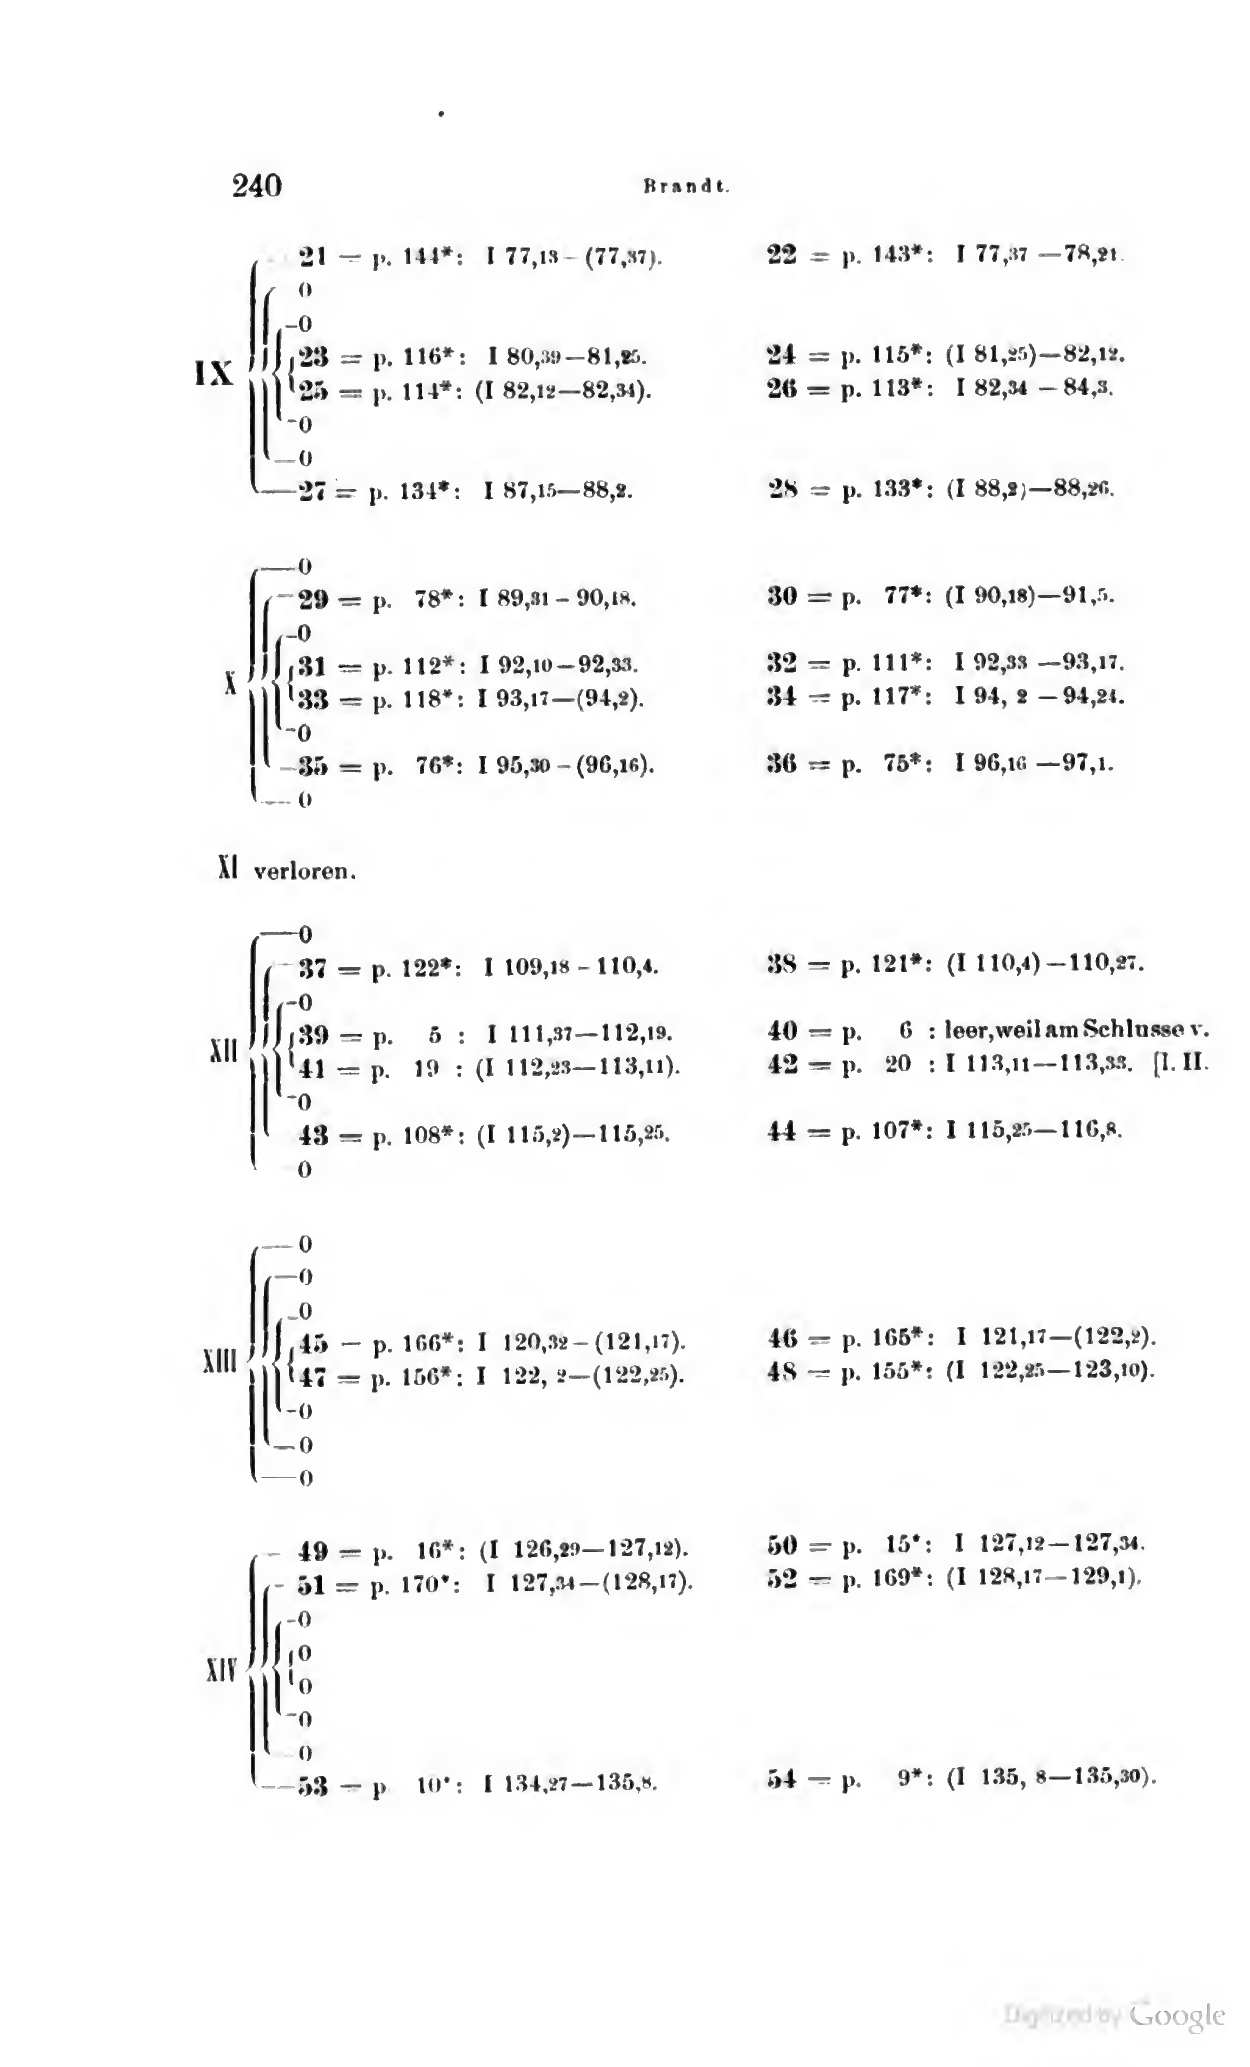 240 Brandt.
21 = p. 144*: I 77,13–(77,37). 22 = p. 143*: I 77,37—78,21.
0
0
23 = p. 116*: I 80,39—81,25. 24 = p. 115*: (I 81,25)—82,12.
IX
25 = p. 114*: (I 82,12—82,34). 26 = p. 113*: I 82,34 – 84,3.
0
0
27 = p. 134*: I 87,15—88,2. 28 = p. 133*: (I 88,2)—88,26.
0
29 = p. 78*: I 89,31 – 90,18. 30 = p. 77*: (I 90,18)—91,5.
0
31 = p. 112*: I 92,10—92,33. 32 = p. 111*: I 92,33 —93,17.
X
33 = p. 118*: I 93,17—(94,2). 34 = p. 117*: I 94, 2 – 94,24.
0
35 = p. 76*: I 95,30 – (96,16). 36 = p. 75*: I 96,16 —97,1.
0
XI verloren.
0
37 = p. 122*: I 109,18 – 110,4. 38 = p. 121*: (I 110,4)—110,27.
0
39 = p. 5 : I 111,37—112,19. 40 = p. 6 : leer, weil am Schlusse v.
XII
41 = p. 19 : (I 112,23—113,11). 42 = p. 20 : I 113,11—113,33. [I. II.
0
43 = p. 108*: (I 115,2)—115,25. 44 = p. 107*: I 115,25—116,8.
0
0
0
0
45 = p. 166*: I 120,32–(121,17). 46 = p. 165*: I 121,17—(122,2).
XIII
47 = p. 156*: I 122, 2—(122,25). 48 = p. 155*: (I 122,25—123,10).
0
0
0
49 = p. 16*: (I 126,29—127,12). 50 = p. 15*: I 127,12—127,34.
51 = p. 170*: I 127,34—(128,17). 52 = p. 169*: (I 128,17—129,1).
0
0
XIV
0
0
0
53 = p 10*: I 134,27—135,8. 54 = p. 9*: (I 135, 8—135,30).
Digitized by Google